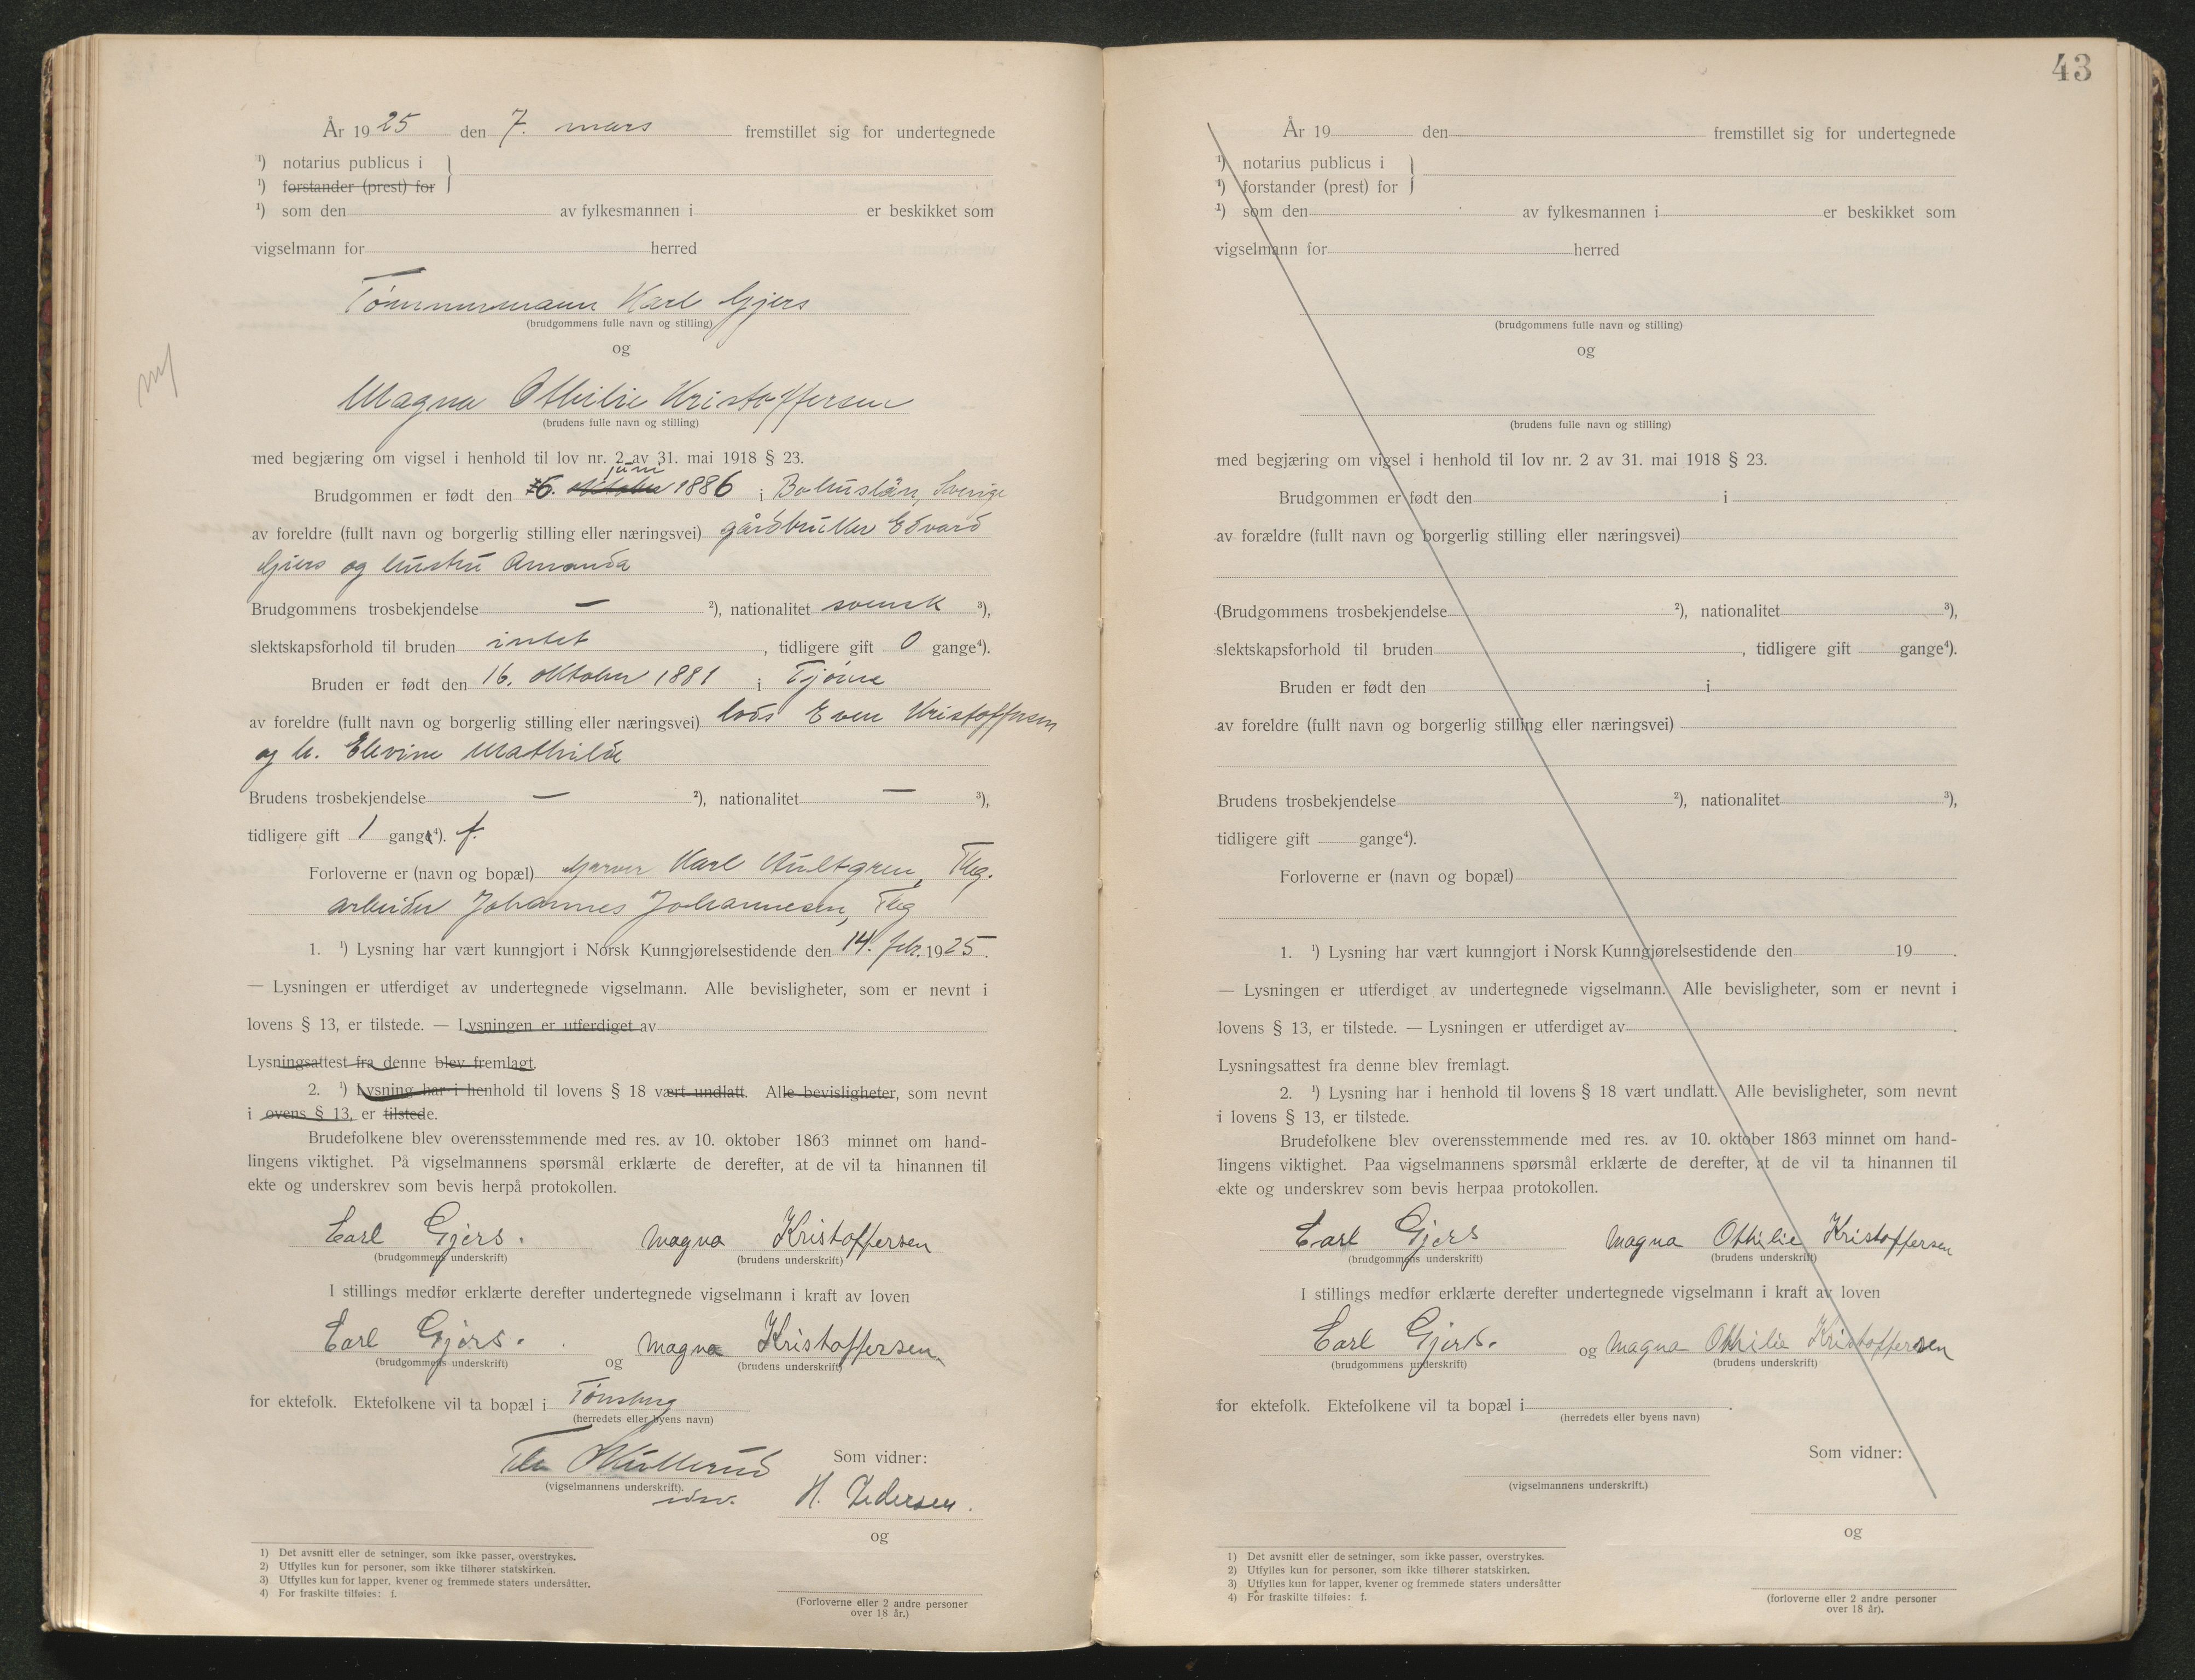 År 1925 den 7. mars fremstillet sig for undertegnede
¹) notarius publicus i
¹) forstander (prest) for
¹) som den av fylkesmannen i er beskikket som
vigselmann for herred
Tømmermann Karl Gjers
(brudgommens fulle navn og stilling)
og
Magna Othilie Kristoffersen
(brudens fulle navn og stilling)
med begjæring om vigsel i henhold til lov nr. 2 av 31. mai 1918 § 23.
juni
Brudgommen er født den 16. oktober 1886 i Bohuslän, Sverige
av foreldre (fullt navn og borgerlig stilling eller næringsvei) gårdbruker Edvard
Gjers og hustru Amanda
Brudgommens trosbekjendelse — ²), nationalitet svensk ³),
slektskapsforhold til bruden intet, tidligere gift 0 gange⁴).
Bruden er født den 16. oktober 1881 i Tjøme
av foreldre (fullt navn og borgerlig stilling eller næringsvei) lods Even Kristoffersen
og h. Elevine Mathilde
Brudens trosbekjendelse — ²), nationalitet — ³),
tidligere gift 1 gang⁴). f.
Forloverne er (navn og bopæl) Garver Karl Hultgren, Tbg.
arbeider Johannes Johannesen, Tbg
1. ¹) Lysning har vært kunngjort i Norsk Kunngjørelsestidende den 14. febr. 1925.
— Lysningen er utferdiget av undertegnede vigselmann. Alle bevisligheter, som er nevnt i
lovens § 13, er tilstede. — Lysningen er utferdiget av
Lysningsattest fra denne blev fremlagt.
2. ¹) Lysning har i henhold til lovens § 18 vært undlatt. Alle bevisligheter, som nevnt
i lovens § 13, er tilstede.
Brudefolkene blev overensstemmende med res. av 10. oktober 1863 minnet om hand-
lingens viktighet. På vigselmannens spørsmål erklærte de derefter, at de vil ta hinannen til
ekte og underskrev som bevis herpå protokollen.
Carl Gjers. Magna Kristoffersen
(brudgommens underskrift) (brudens underskrift)
I stillings medfør erklærte derefter undertegnede vigselmann i kraft av loven
Carl Gjers. og Magna Kristoffersen
(brudgommens underskrift) (brudens underskrift)
for ektefolk. Ektefolkene vil ta bopæl i Tønsberg
(herredets eller byens navn)
Som vidner:
(vigselmannens underskrift).
H. Pedersen.
og
1) Det avsnitt eller de setninger, som ikke passer, overstrykes.
2) Utfylles kun for personer, som ikke tilhører statskirken.
3) Utfylles kun for lapper, kvener og fremmede staters undersåtter.
4) For fraskilte tilføies: f.
(Forloverne eller 2 andre personer
over 18 år.)
43
År 19 den fremstillet sig for undertegnede
¹) notarius publicus i
¹) forstander (prest) for
¹) som den av fylkesmannen i er beskikket som
vigselmann for herred
(brudgommens fulle navn og stilling)
og
(brudens fulle navn og stilling)
med begjæring om vigsel i henhold til lov nr. 2 av 31. mai 1918 § 23.
Brudgommen er født den i
av forældre (fullt navn og borgerlig stilling eller næringsvei)
(Brudgommens trosbekjendelse ²), nationalitet ³),
slektskapsforhold til bruden , tidligere gift gange⁴).
Bruden er født den i
av foreldre (fullt navn og borgerlig stilling eller næringsvei)
Brudens trosbekjendelse ²), nationalitet ³),
tidligere gift gange⁴).
Forloverne er (navn og bopæl)
1. ¹) Lysning har vært kunngjort i Norsk Kunngjørelsestidende den 19 .
— Lysningen er utferdiget av undertegnede vigselmann. Alle bevisligheter, som er nevnt i
lovens § 13, er tilstede. — Lysningen er utferdiget av .
Lysningsattest fra denne blev fremlagt.
2. ¹) Lysning har i henhold til lovens § 18 vært undlatt. Alle bevisligheter, som nevnt
i lovens § 13, er tilstede.
Brudefolkene blev overensstemmende med res. av 10. oktober 1863 minnet om hand-
lingens viktighet. Paa vigselmannens spørsmål erklærte de derefter, at de vil ta hinannen til
ekte og underskrev som bevis herpaa protokollen.
Carl Gjers Magna Othilie Kristoffersen
(brudgommens underskrift) (brudens underskrift)
I stillings medfør erklærte derefter undertegnede vigselmann i kraft av loven
Carl Gjers. og Magna Othilie Kristoffersen
(brudgommens underskrift) (brudens underskrift)
for ektefolk. Ektefolkene vil ta bopæl i .
(herredets eller byens navn)
Som vidner:
(vigselmannens underskrift.)
og
1) Det avsnitt eller de setninger, som ikke passer, overstrykes.
2) Utfylles kun for personer, som ikke tilhører statskirken.
3) Utfylles kun for lapper, kvener og fremmede staters undersåtter
4) For fraskilte tilføies: f.
(forloverne eller 2 andre personer
over 18 år).